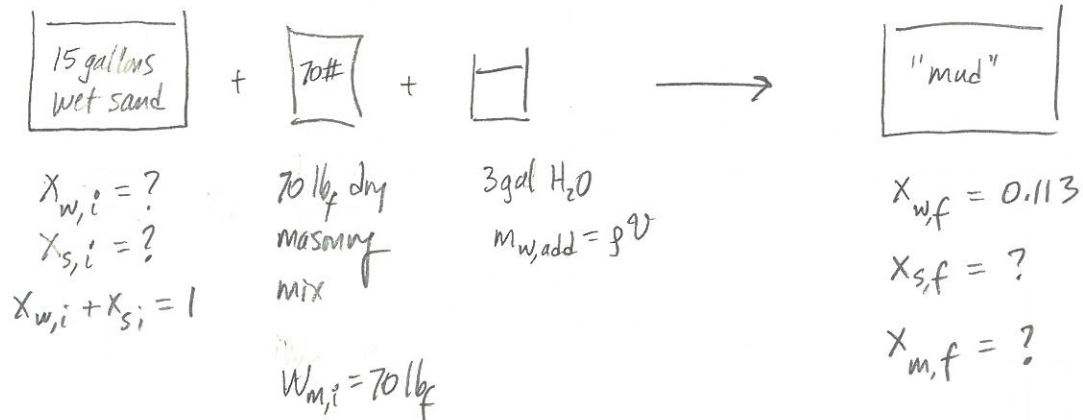 15 gallons
wet sand
+
70#
+
"mud"
X_w,i = ?
X_s,i = ?
X_w,i + X_s,i = 1
70 lb_f dry
masonry
mix
W_m,i = 70 lb_f
3 gal H₂O
m_w,add = ρV
X_w,f = 0.113
X_s,f = ?
X_m,f = ?